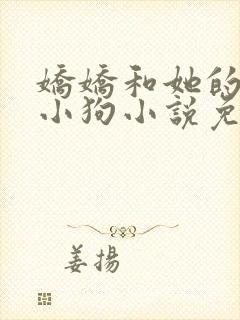 嬌嬌和她的
小狗小說免
姜揚